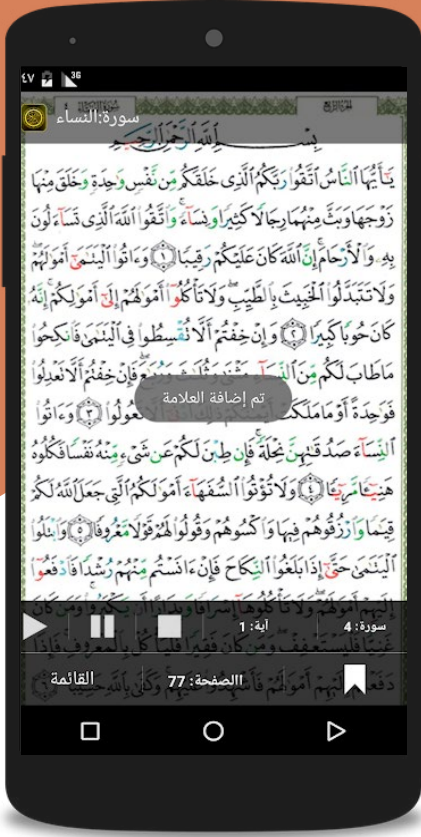 ٤٧ 36
سورة:النساء
بِسْمِ اللَّهِ الرَّحْمَٰنِ الرَّحِيمِ
يَٰٓأَيُّهَا ٱلنَّاسُ ٱتَّقُوا۟ رَبَّكُمُ ٱلَّذِى خَلَقَكُم مِّن نَّفْسٍ وَٰحِدَةٍ وَخَلَقَ مِنْهَا
زَوْجَهَا وَبَثَّ مِنْهُمَا رِجَالًا كَثِيرًا وَنِسَآءً وَٱتَّقُوا۟ ٱللَّهَ ٱلَّذِى تَسَآءَلُونَ
بِهِۦ وَٱلْأَرْحَامَ إِنَّ ٱللَّهَ كَانَ عَلَيْكُمْ رَقِيبًا ١ وَءَاتُوا۟ ٱلْيَتَٰمَىٰٓ أَمْوَٰلَهُمْ
وَلَا تَتَبَدَّلُوا۟ ٱلْخَبِيثَ بِٱلطَّيِّبِ وَلَا تَأْكُلُوٓا۟ أَمْوَٰلَهُمْ إِلَىٰٓ أَمْوَٰلِكُمْ إِنَّهُۥ
كَانَ حُوبًا كَبِيرًا ٢ وَإِنْ خِفْتُمْ أَلَّا تُقْسِطُوا۟ فِى ٱلْيَتَٰمَىٰ فَٱنكِحُوا۟
مَا طَابَ لَكُم مِّنَ ٱلنِّسَآءِ مَثْنَىٰ وَثُلَٰثَ وَرُبَٰعَ فَإِنْ خِفْتُمْ أَلَّا تَعْدِلُوا۟
تم إضافة العلامة
فَوَٰحِدَةً أَوْ مَا مَلَكَتْ تَعُولُوا۟ ٣ وَءَاتُوا۟
ٱلنِّسَآءَ صَدُقَٰتِهِنَّ نِحْلَةً فَإِن طِبْنَ لَكُمْ عَن شَىْءٍ مِّنْهُ نَفْسًا فَكُلُوهُ
هَنِيٓـًٔا مَّرِيٓـًٔا ٤ وَلَا تُؤْتُوا۟ ٱلسُّفَهَآءَ أَمْوَٰلَكُمُ ٱلَّتِى جَعَلَ ٱللَّهُ لَكُمْ
قِيَٰمًا وَٱرْزُقُوهُمْ فِيهَا وَٱكْسُوهُمْ وَقُولُوا۟ لَهُمْ قَوْلًا مَّعْرُوفًا ٥ وَٱبْتَلُوا۟
ٱلْيَتَٰمَىٰ حَتَّىٰٓ إِذَا بَلَغُوا۟ ٱلنِّكَاحَ فَإِنْ ءَانَسْتُم مِّنْهُمْ رُشْدًا فَٱدْفَعُوٓا۟
إِلَيْهِمْ أَمْوَٰلَهُمْ وَلَا تَأْكُلُوهَآ إِسْرَافًا وَبِدَارًا أَن يَكْبَرُوا۟ وَمَن كَانَ
سورة: 4 آية: 1
غَنِيًّا فَلْيَسْتَعْفِفْ وَمَن كَانَ فَقِيرًا فَلْيَأْكُلْ بِٱلْمَعْرُوفِ فَإِذَا
دَفَعْتُمْ إِلَيْهِمْ أَمْوَٰلَهُمْ فَأَشْهِدُوا۟ عَلَيْهِمْ وَكَفَىٰ بِٱللَّهِ حَسِيبًا ٦
االصفحة: 77 القائمة